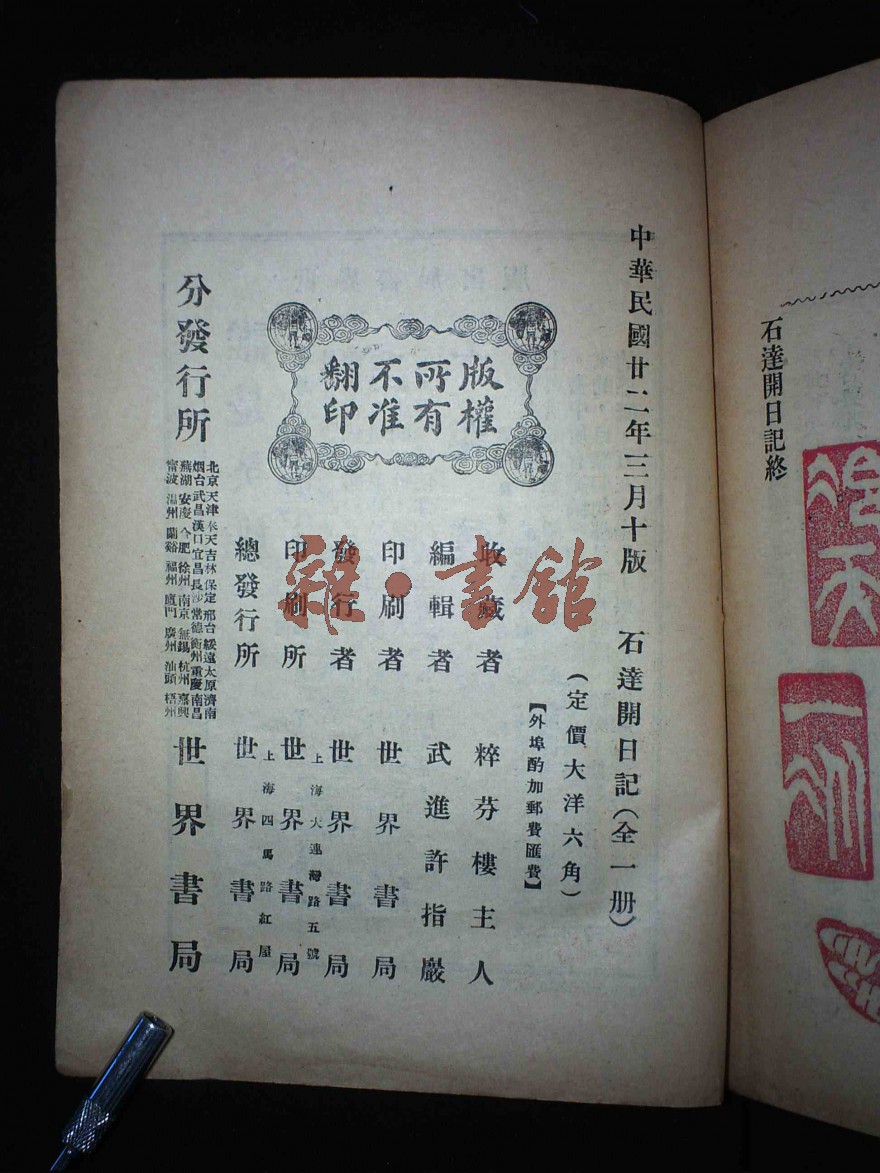 石達開日記終
中華民國廿二年三月十版
石達開日記（全一册）
（定價大洋六角）
【外埠酌加郵費匯費】
版權
所有
不准
翻印
收藏者 粹芬樓主人
編輯者 武進許指嚴
印刷者 世界書局
發行者 世界書局
印刷所 上海大連灣路五號 世界書局
總發行所 上海四馬路紅屋 世界書局
分發行所
北京 天津 奉天 吉林 保定 邢台 綏遠 太原 濟南
烟台 武昌 漢口 宜昌 長沙 常德 衡州 重慶 南昌
蕪湖 安慶 合肥 徐州 南京 無錫 杭州 嘉興
甯波 温州 蘭谿 福州 廈門 廣州 汕頭 梧州
世界書局
雜·書館